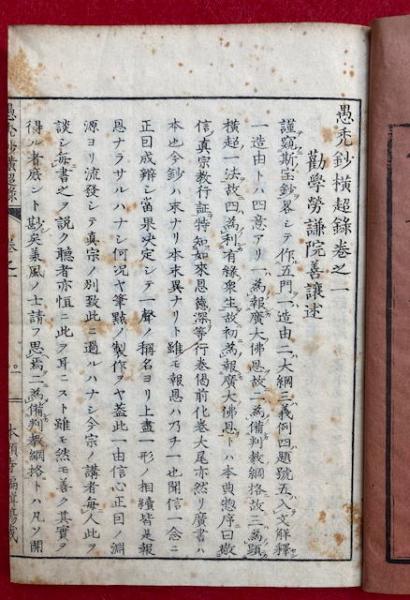 愚禿鈔橫超錄卷之一
勸學勞謙院善讓述
謹窺斯宝鈔畧シテ作五門一造由二大綱三義例四題號五入文解釋
一造由トハ四意アリ一為報廣大佛恩故二為備判教綱格故三為顯
橫超一法故四為利有緣衆生故初為報廣大佛恩トハ本典總序曰敬
信真宗教行証特知如來恩德深等行卷偈前化卷大尾亦然リ廣書ハ
本也今鈔ハ末ナリ本末異ナリト雖モ報恩ハ乃チ一也聞信一念ニ
正因成辨シ當果決定シテ一聲ノ稱名ヨリ上盡一形ノ相續皆是報
恩ナラサルハナシ何況ヤ筆點ノ製作ヲヤ蓋此一由信心正因ノ淵
源ヨリ流發シテ真宗ノ別致此ニ過ルハナシ今宗ノ講者每人此ヲ
談シ每書之ヲ說ク聽者亦恒ニ此ヲ耳ニスト雖モ然モ善ク其實ヲ
得ル者底シト尠矣稟風ノ士請フ思焉二為備判教綱格トハ凡ソ開
愚禿鈔橫超錄 卷之一